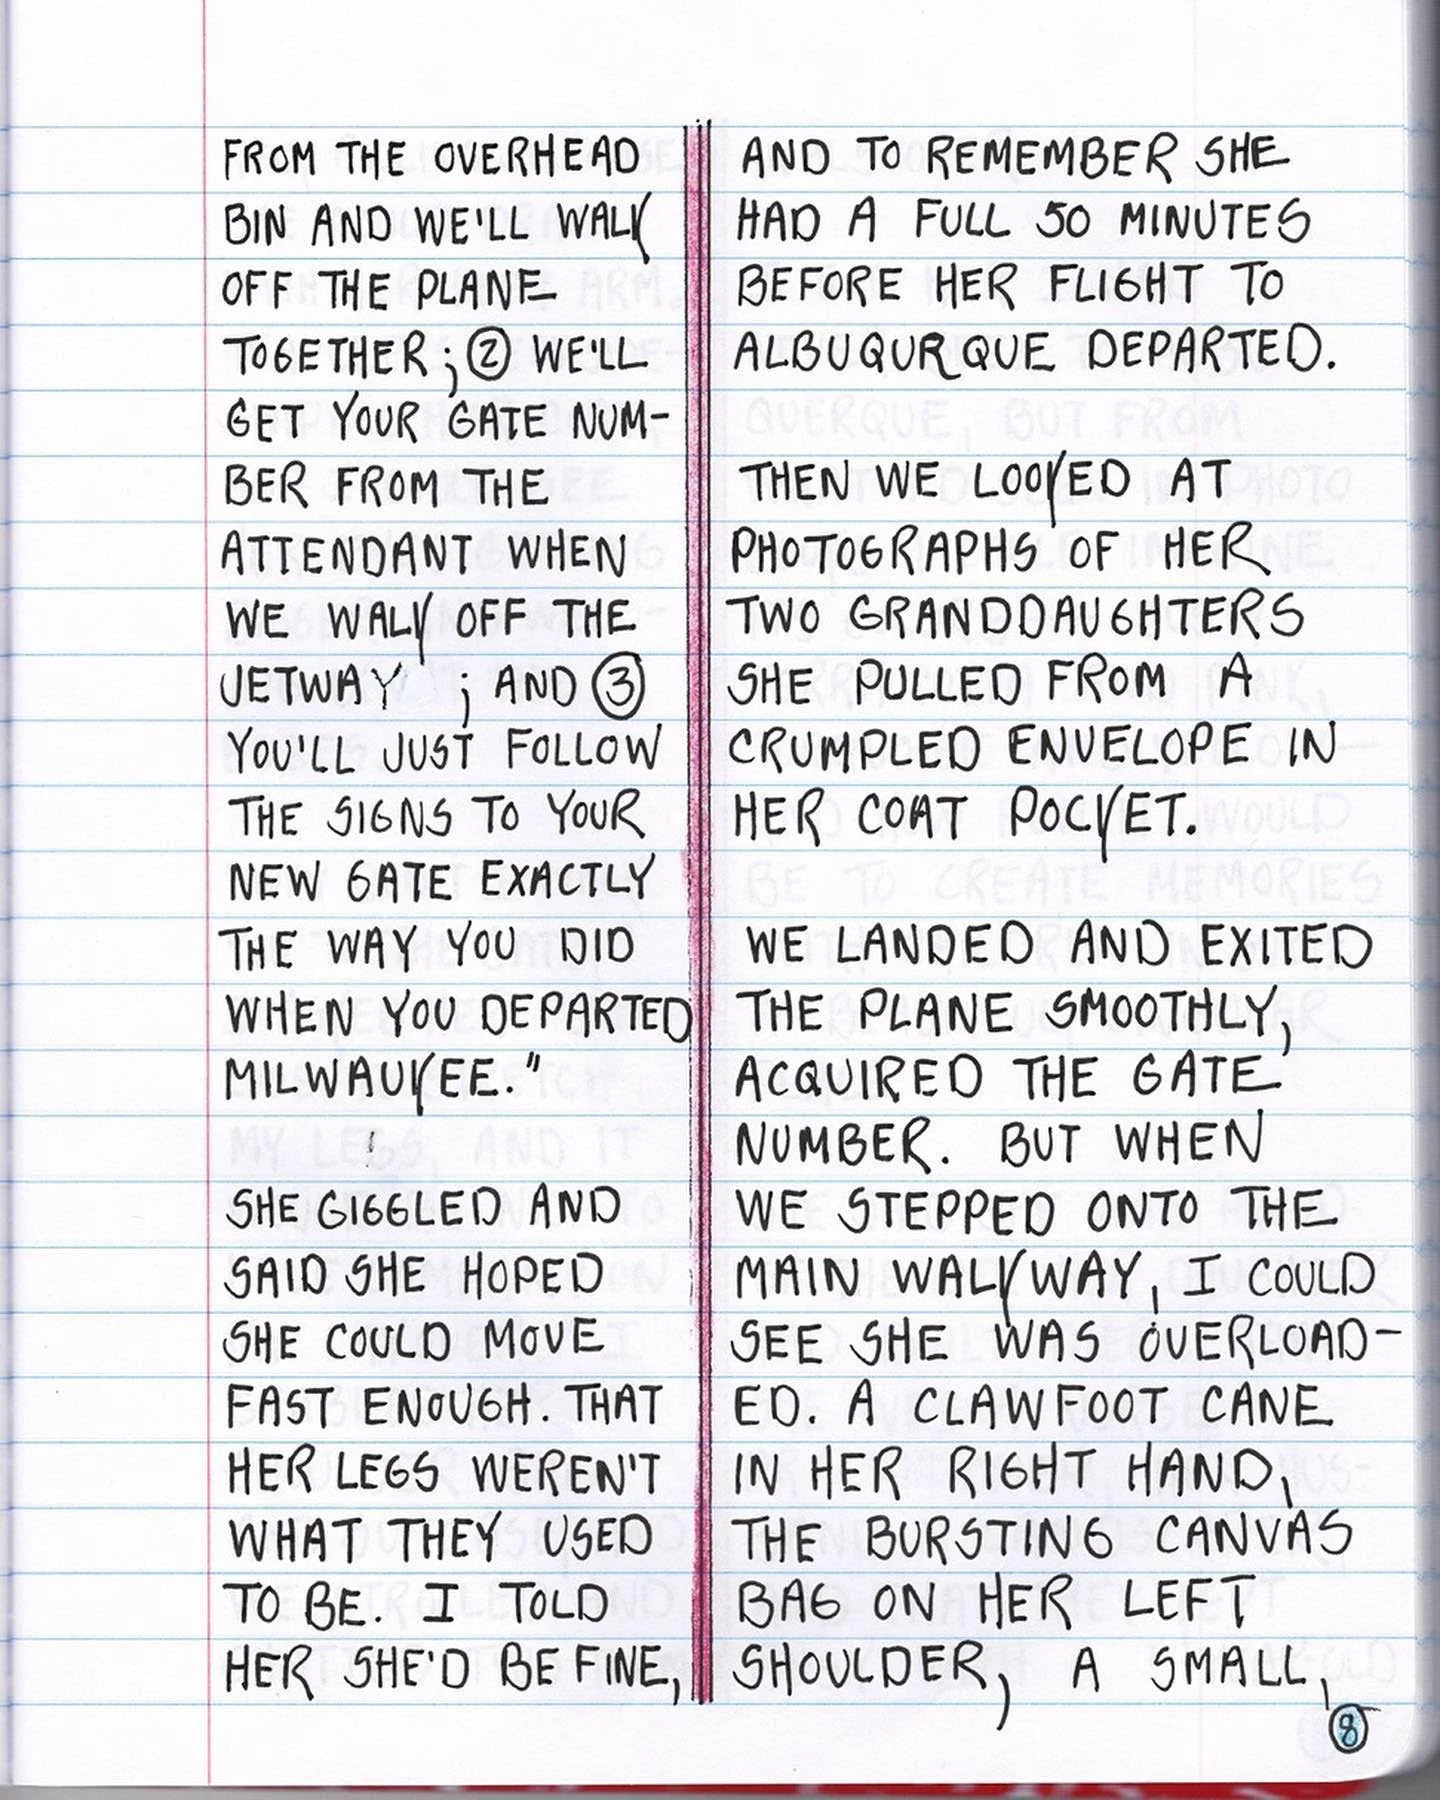 FROM THE OVERHEAD
BIN AND WE'LL WALK
OFF THE PLANE
TOGETHER; ② WE'LL
GET YOUR GATE NUM-
BER FROM THE
ATTENDANT WHEN
WE WALK OFF THE
JETWAY ; AND ③
YOU'LL JUST FOLLOW
THE SIGNS TO YOUR
NEW GATE EXACTLY
THE WAY YOU DID
WHEN YOU DEPARTED
MILWAUKEE."
SHE GIGGLED AND
SAID SHE HOPED
SHE COULD MOVE
FAST ENOUGH. THAT
HER LEGS WEREN'T
WHAT THEY USED
TO BE. I TOLD
HER SHE'D BE FINE,
AND TO REMEMBER SHE
HAD A FULL 50 MINUTES
BEFORE HER FLIGHT TO
ALBUQURQUE DEPARTED.
THEN WE LOOKED AT
PHOTOGRAPHS OF HER
TWO GRANDDAUGHTERS
SHE PULLED FROM A
CRUMPLED ENVELOPE IN
HER COAT POCKET.
WE LANDED AND EXITED
THE PLANE SMOOTHLY,
ACQUIRED THE GATE
NUMBER. BUT WHEN
WE STEPPED ONTO THE
MAIN WALKWAY, I COULD
SEE SHE WAS OVERLOAD-
ED. A CLAWFOOT CANE
IN HER RIGHT HAND,
THE BURSTING CANVAS
BAG ON HER LEFT
SHOULDER, A SMALL,
8